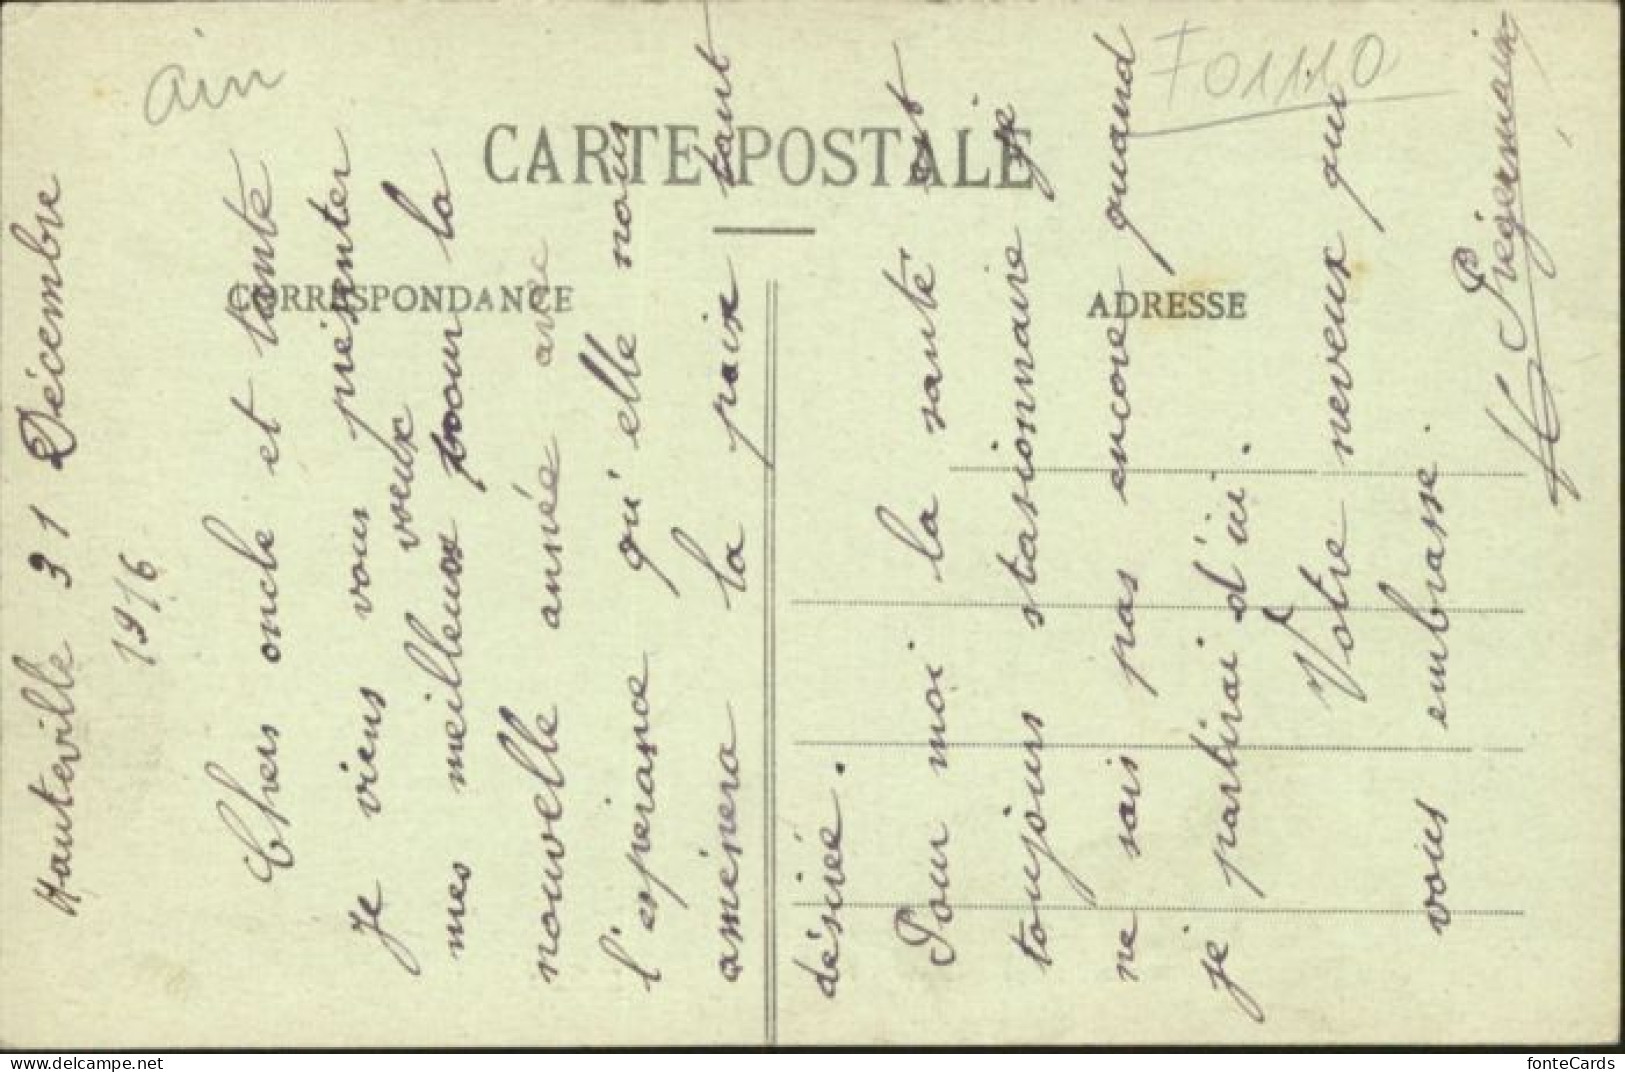 Ain
F01110
CARTE POSTALE
CORRESPONDANCE
ADRESSE
Hauteville 31 Décembre
1916
Chers oncle et tante
Je viens vous présenter
mes meilleurs voeux pour la
nouvelle année avec
l'esperance qu'elle nous
amènera la paix tant
désirée.
Pour moi la santé est
toujours stasionnaire je
ne sais pas encore quand
je partirai d'ici.
Votre neveux qui
vous embrasse.
Pregermain
www.delcampe.net
fonteCards